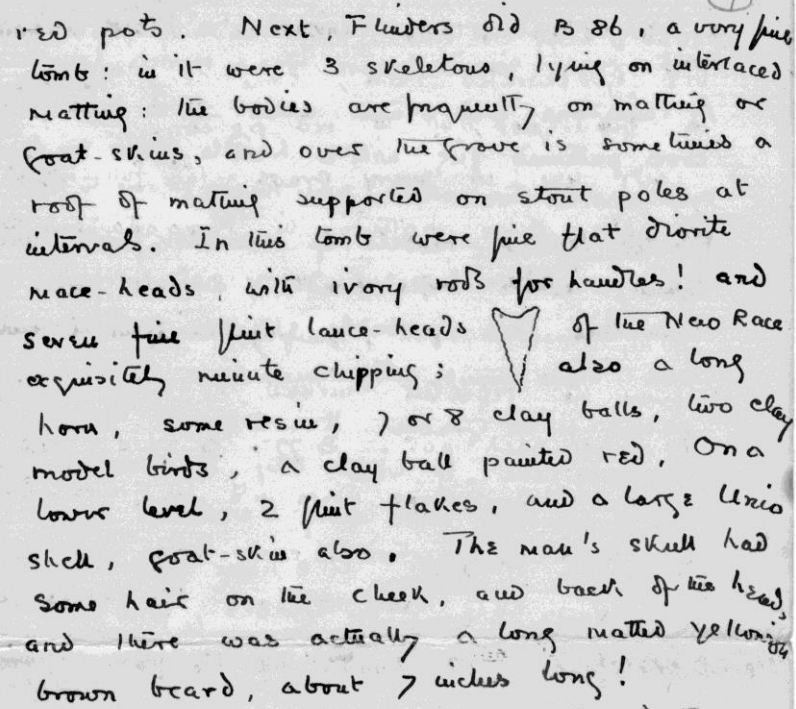 red pots. Next, Flinders did B 86, a very fine
tomb: in it were 3 skeletons, lying on interlaced
matting: the bodies are frequently on matting or
goat-skins, and over the grave is sometimes a
roof of matting supported on stout poles at
intervals. In this tomb were fine flat diorite
mace-heads, with ivory rods for handles! and
seven fine flint lance-heads of the New Race
exquisitely minute chipping; also a long
horn, some resin, 7 or 8 clay balls, two clay
model birds, a clay ball painted red. On a
lower level, 2 flint flakes, and a large Unio
shell, goat-skin also. The man's skull had
some hair on the cheek, and back of the head,
and there was actually a long matted yellowish
brown beard, about 7 inches long!